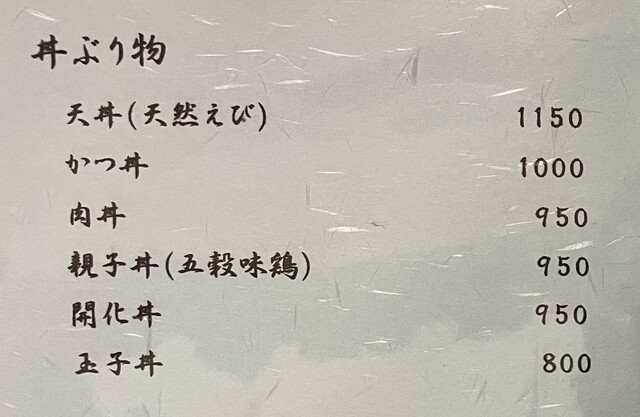 丼ぶり物
天丼(天然えび) 1150
かつ丼 1000
肉丼 950
親子丼(五穀味鶏) 950
開化丼 950
玉子丼 800